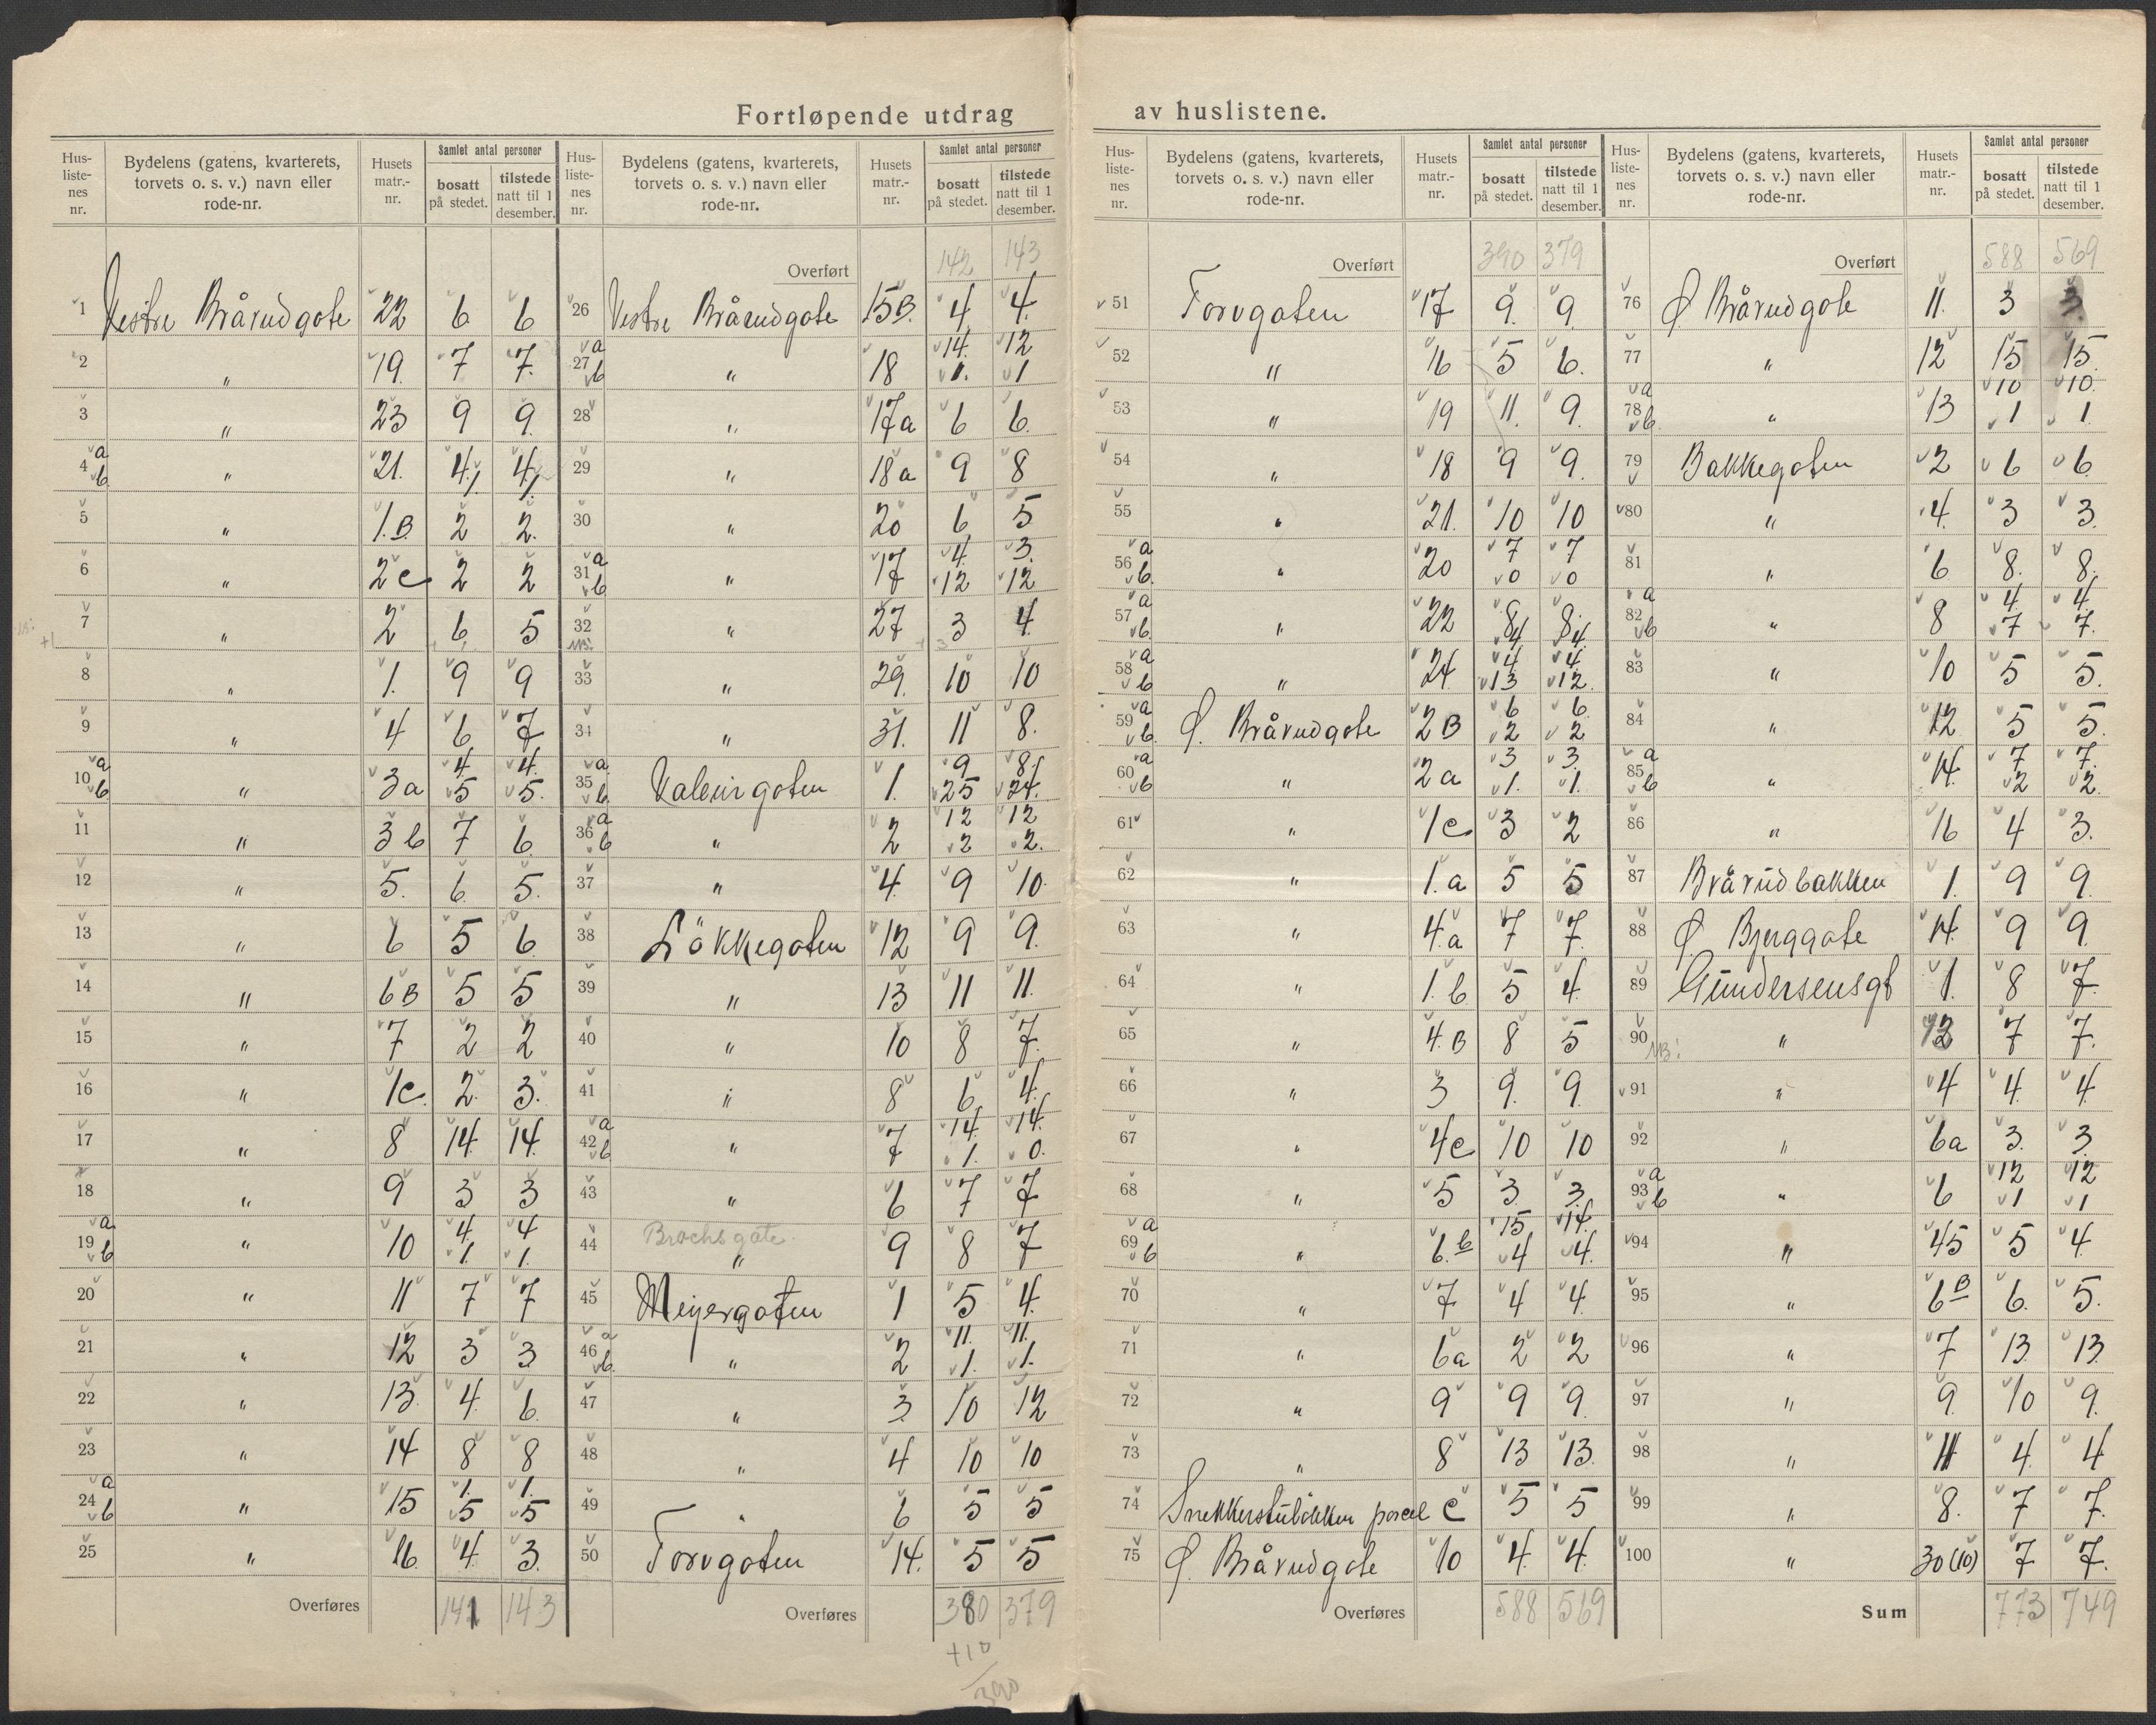 Fortløpende utdrag av huslistene.
Hus-liste-nes nr. | Bydelens (gatens, kvarterets, torvets o. s. v.) navn eller rode-nr. | Husets matr.-nr. | Samlet antal personer | bosatt på stedet. | tilstede natt til 1 desember.
1 Vestre Brårudgate 22 6 6
2 " 19. 7 7.
3 " 23 9 9.
4 a b " 21. 4 1 4 1
5 " 1.B 2 2.
6 " 2c 2 2
7 " 2 6 5
8 " 1. 9 9
9 " 4 6 7
10 a b " 3a 4. 5 4. 5.
11 " 3b 7 6.
12 " 5. 6. 5.
13 " 6 5 6
14 " 6B 5 5
15 " 7 2 2
16 " 1c. 2. 3.
17 " 8 14. 14.
18 " 9 3 3
19 a b " 10 4. 1. 4 1.
20 " 11 7 7
21 " 12 3 3
22 " 13 4. 6.
23 " 14 8 8
24 a b " 15 1. 5 1. 5
25 " 16. 4. 3.
Overføres 142 143
Hus-liste-nes nr. | Bydelens (gatens, kvarterets, torvets o. s. v.) navn eller rode-nr. | Husets matr.-nr. | Samlet antal personer | bosatt på stedet. | tilstede natt til 1 desember.
Overført 142 143
26 Vestre Brårudgate 15B. 4 4.
27 a b " 18 14. 1. 12 1
28 " 17a 6 6.
29 " 18a 9 8
30 " 20 6 5
31 a b " 17 4. 12 3. 12
32 NB! " 27 3 4.
33 " 29. 10 10
34 " 31. 11 8.
35 a b Valeurgaten 1. 9 25 8. 24.
36 a b " 2 12 2 12 2.
37 " 4. 9 10.
38 Løkkegaten 12 9 9.
39 " 13 11 11.
40 " 10 8 7.
41 " 8 6 4.
42 a b " 7 14. 1. 14. 0.
43 " 6 7 7
44 Brochsgate " 9 8 7
45 Meyergaten 1 5 4.
46 a b " 2 11. 1. 11. 1.
47 " 3. 10 12
48 " 4 10 10
49 " 6 5 5
50 Torvgaten 14. 5 5
Overføres 380 379
+10
390
Hus-liste-nes nr. | Bydelens (gatens, kvarterets, torvets o. s. v.) navn eller rode-nr. | Husets matr.-nr. | Samlet antal personer | bosatt på stedet. | tilstede natt til 1 desember.
Overført 390 379
51 Torvgaten 17 9. 9.
52 " 16 5 6.
53 " 19 11. 9.
54 " 18 9 9.
55 " 21. 10 10
56 a b " 20 7 0 7 0
57 a b " 22 8 4 8. 4.
58 a b " 24 4 13 4. 12.
59 a b Ø. Brårudgate 2B 6 2 6. 2
60 a b " 2a 3 1. 3. 1.
61 " 1c 3 2
62 " 1.a 5 5
63 " 4.a 7 7.
64 " 1.b 5 4
65 " 4.B 8 5
66 " 3 9. 9.
67 " 4c 10 10
68 " 5 3 3.
69 a b " 6.b 15 4 14. 4.
70 " 7 4 4.
71 " 6a 2 2
72 " 9 9 9.
73 " 8 13 13.
74 Snekkerstubakken parcel c 5 5
75 Ø. Brårudgate 10 4. 4.
Overføres 588 569
Hus-liste-nes nr. | Bydelens (gatens, kvarterets, torvets o. s. v.) navn eller rode-nr. | Husets matr.-nr. | Samlet antal personer | bosatt på stedet. | tilstede natt til 1 desember.
Overført 588 569
76 Ø. Brårudgate 11. 3 3.
77 " 12 15 15.
78 a b " 13 10 1 10. 1.
79 Bakkegaten 2 6 6.
80 " 4. 3 3.
81 " 6 8. 8.
82 a b " 8 4. 7 4. 7.
83 " 10 5 5.
84 " 12 5 5.
85 a b " 14. 7 2 7. 2.
86 " 16 4 3.
87 Brårudbakken 1. 9 9.
88 Ø Bjerggate 14. 9 9.
89 Gundersensgt 1. 8 7.
90 NB! " 2 7 7.
91 " 4 4. 4
92 " 6a 3. 3
93 a b " 6 12 1 12 1
94 " 45 5 4.
95 " 6B 6. 5.
96 " 7 13. 13.
97 " 9. 10 9.
98 " 11 4. 4
99 " 8. 7 7.
100 " 30(10) 7 7.
Sum 773 749